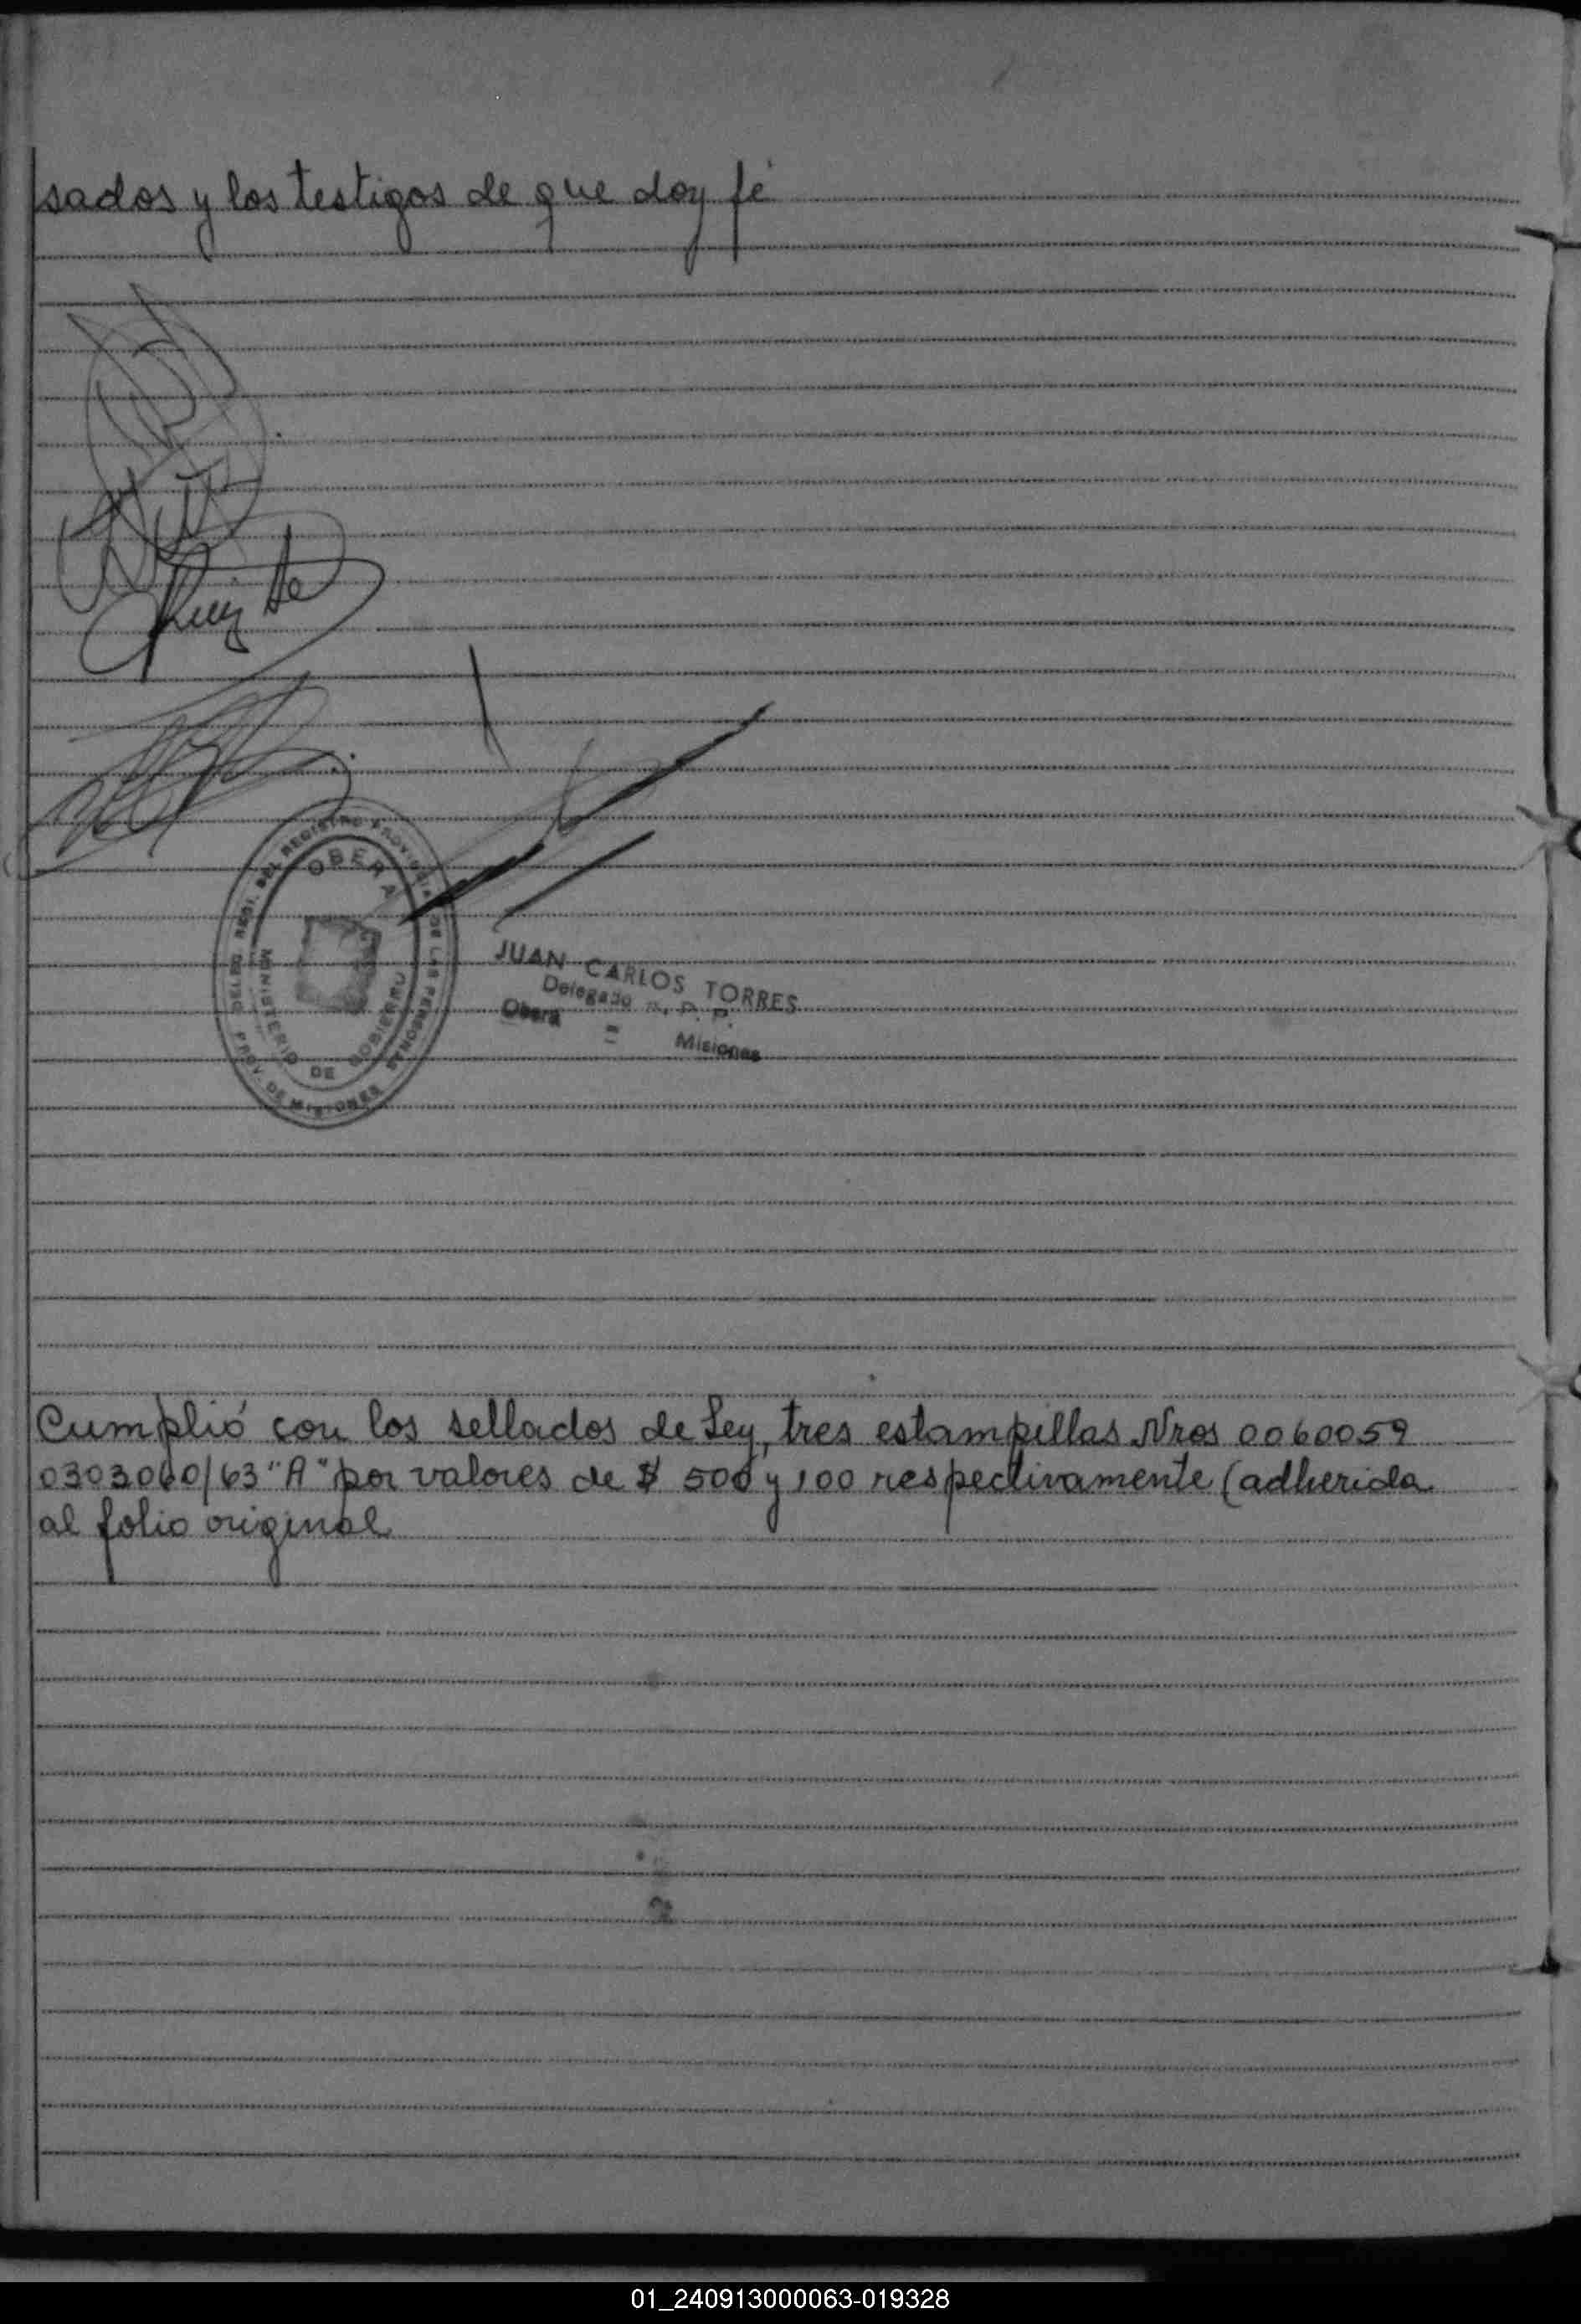 sados y los testigos de que doy fé
OBERA
DELEG. REGI. DEL REGISTRO PROVINCIAL DE LAS PERSONAS
MINISTERIO DE GOBIERNO
PROV. DE MISIONES
JUAN CARLOS TORRES
Delegado R. P. P.
Oberá = Misiones
Cumplió con los sellados de Ley, tres estampillas Nros 0060059
0303060/63 "A" por valores de $ 500 y 100 respectivamente (adherida
al folio original
01_240913000063-019328